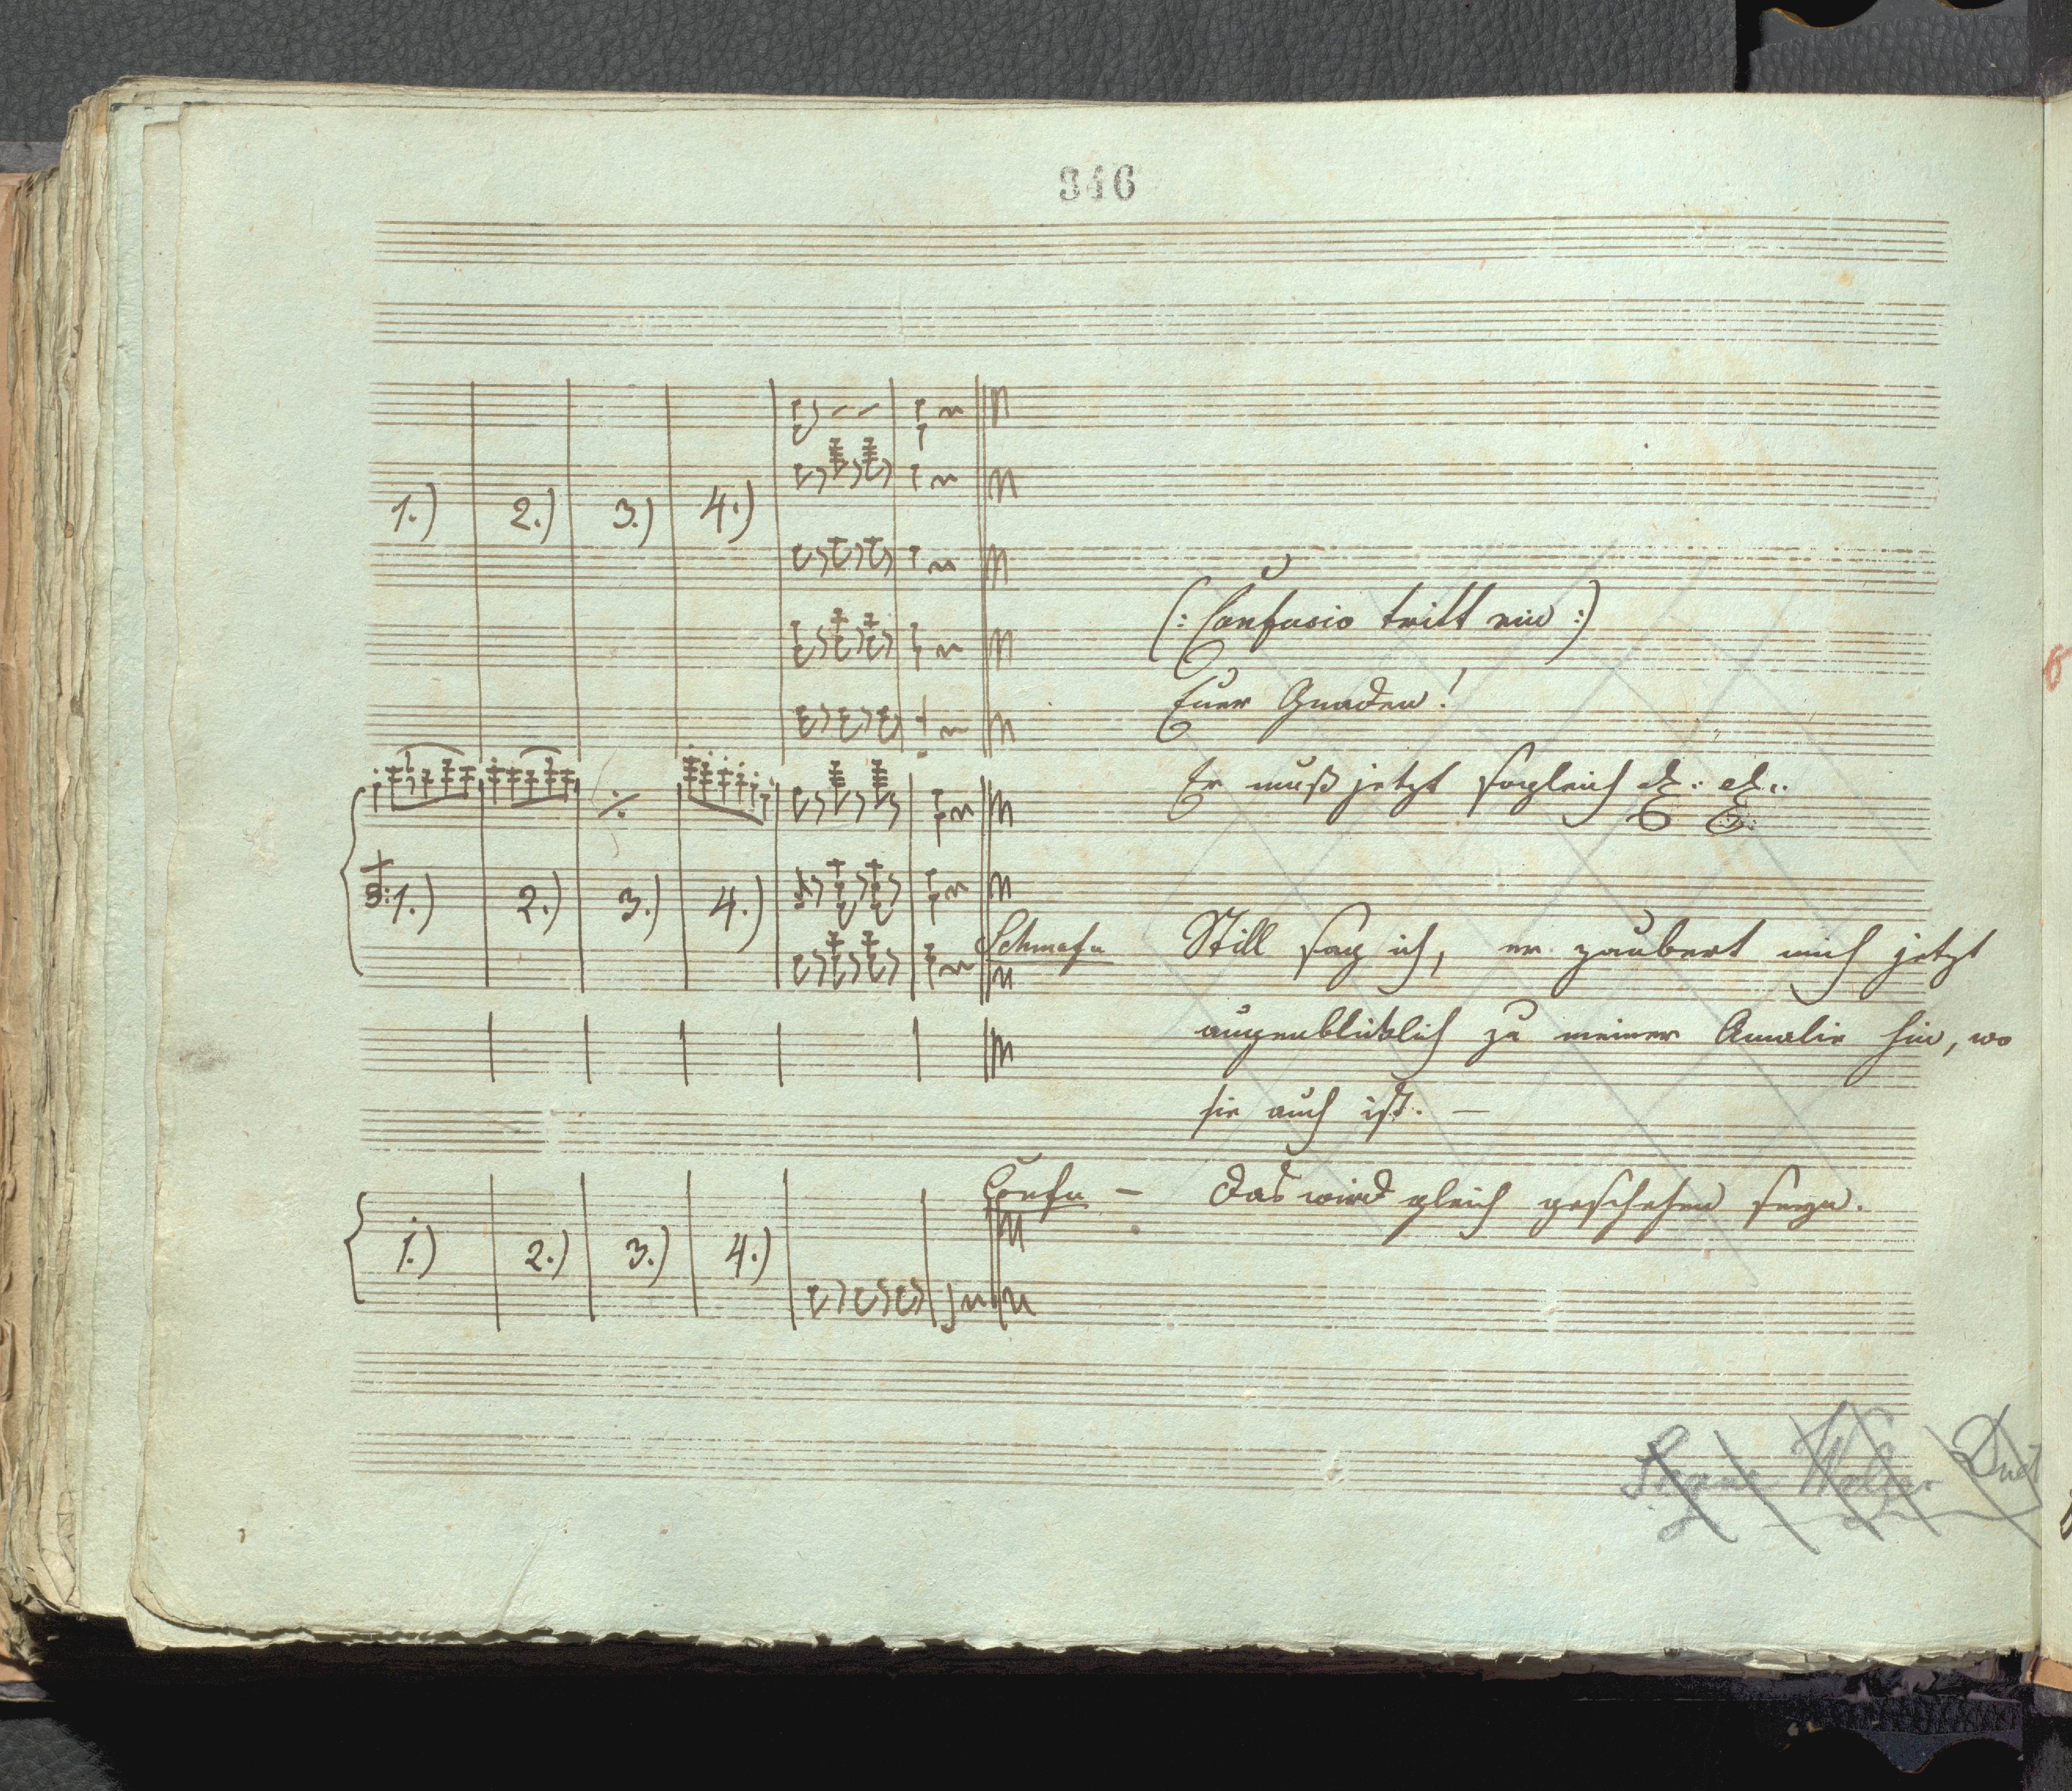 346
1.) 2.) 3.) 4.)
(: Confusio tritt ein :)
Euer Gnaden!
Er muß jetzt sogleich etz: etz:
1.) 2.) 3.) 4.)
Still sag ich, er zaubert mich jetzt
augenblicklich zu meiner Amalie hin, wo
sie auch ist. —
Confu — Das wird gleich geschehen seyn.
1.) 2.) 3.) 4.)
Duet